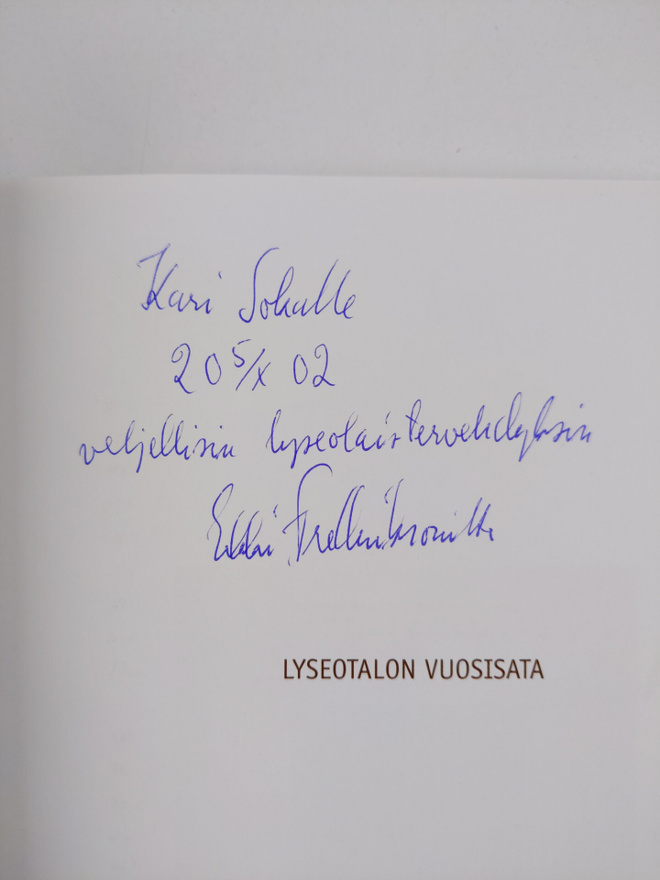 Kari Sohalle
20 5/X 02
veljellisin lyseolaistervehdyksin
Erkki Fredriksonilta
LYSEOTALON VUOSISATA